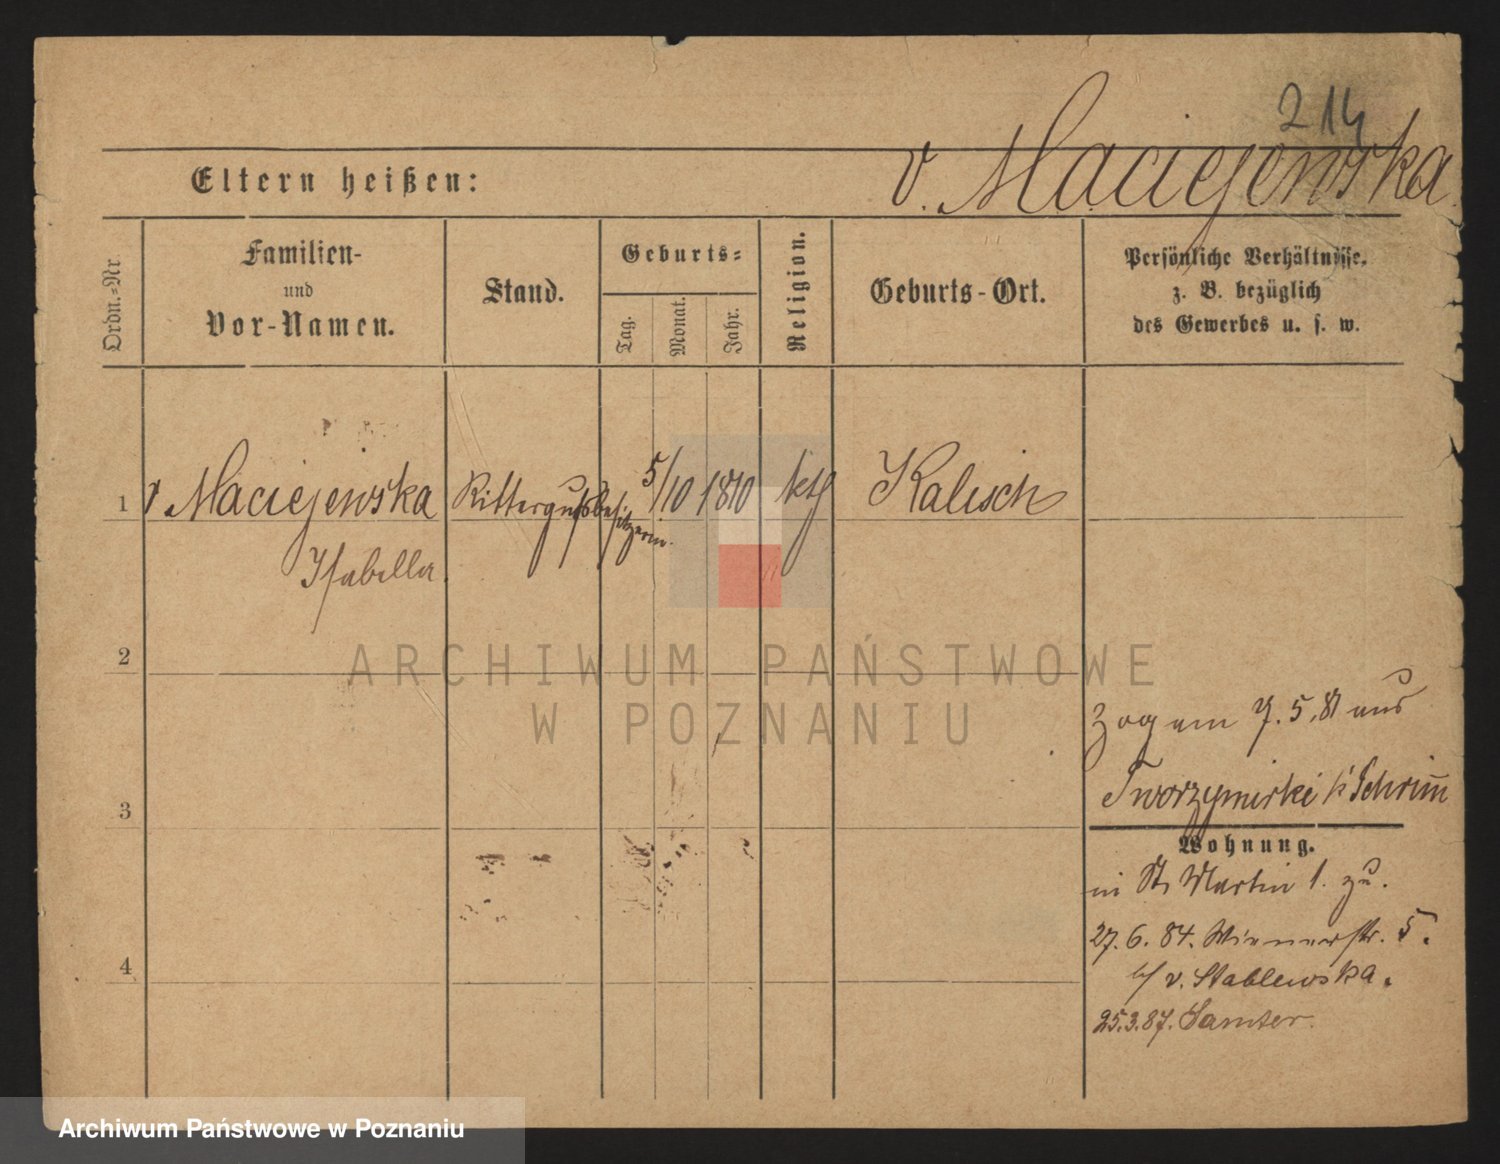 214
v. Maciejewska
Eltern heißen:
Ordn.-Nr
Familien-
und
Vor-Namen.
Stand.
Geburts-
Tag.
Monat.
Jahr.
Religion.
Geburts-Ort.
Persönliche Verhältnisse,
z. B. bezüglich
des Gewerbes u. s. w.
1
v Maciejewska
Isabella
Rittergutsbesitzerin.
5/10 1810
kth
Kalisch
2
ARCHIWUM PAŃSTWOWE
W POZNANIU
zog am 7. 5. 81 aus
Tworzymirki b/ Schrimm
3
Wohnung.
in St. Martin 1. zu.
27. 6. 84. Wienerstr. 5.
b/ v. Stablewska.
4
25.3.87. Samter.
Archiwum Państwowe w Poznaniu